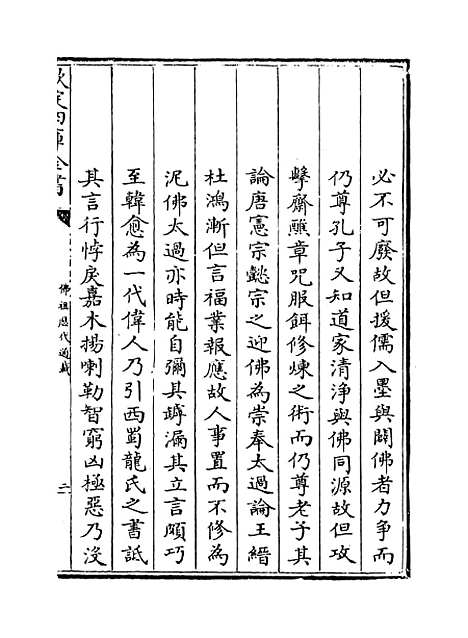 必不可廢故但援儒入墨與闢佛者力爭而
仍尊孔子又知道家清淨與佛同源故但攻
擊齋醮章咒服餌修煉之術而仍尊老子其
論唐憲宗懿宗之迎佛為崇奉太過論王縉
杜鴻漸但言福業報應故人事置而不修為
泥佛太過亦時能自彌其罅漏其立言頗巧
至韓愈為一代偉人乃引西蜀龍氏之書詆
其言行悖戾嘉木揚喇勒智窮凶極惡乃沒
欽定四庫全書
佛祖歷代通載
二